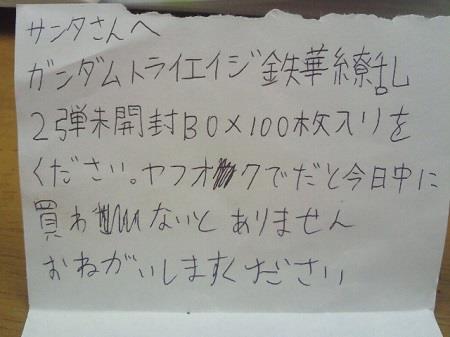 サンタさんへ
ガンダムトライエイジ鉄華繚乱
2弾未開封BOX100枚入りを
ください。ヤフオクでだと今日中に
買わないとありません
おねがいしますください